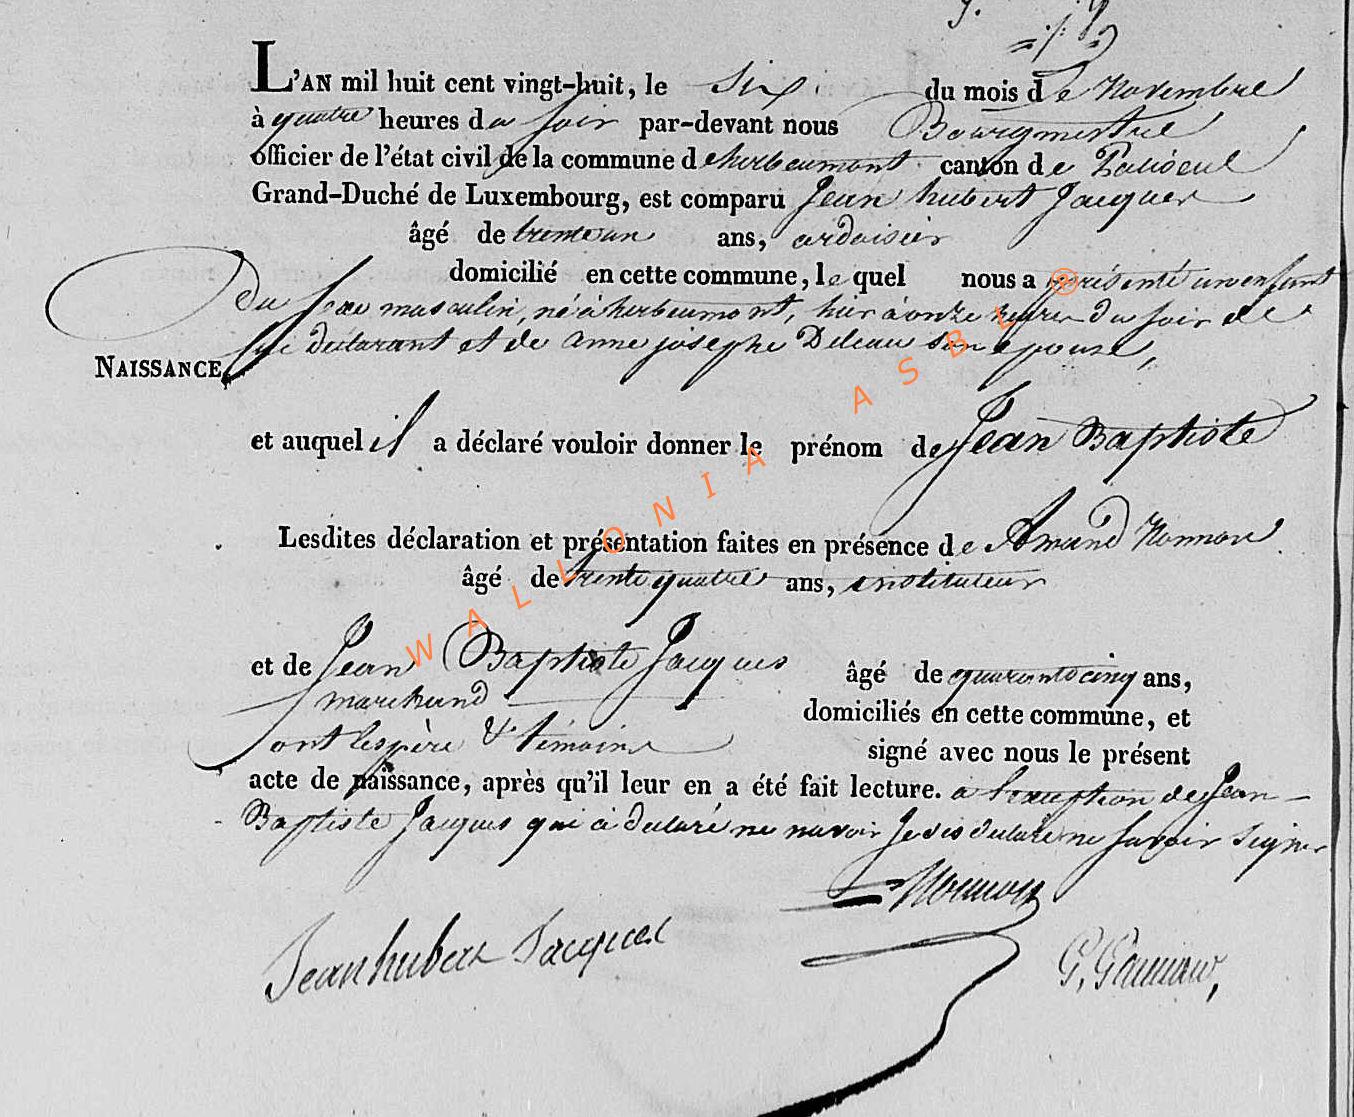 L'AN mil huit cent vingt-huit, le six du mois de Novembre
à quatre heures du soir par-devant nous Bourgmestre
officier de l'état civil de la commune d'herbeumont canton de Paliseul
Grand-Duché de Luxembourg, est comparu Jean hubert Jacques
âgé de trente un ans, ardoisier
domicilié en cette commune, le quel nous a présenté un enfant
du sexe masculin, né à herbeumont, hier à onze heures du soir de
lui déclarant et de Anne josephe Deleau son épouse,
NAISSANCE.
et auquel il a déclaré vouloir donner le prénom de Jean Baptiste
Lesdites déclaration et présentation faites en présence de Amand Nonnon
âgé de trente quatre ans, instituteur
et de Jean Baptiste Jacques âgé de quarante cinq ans,
marchand domiciliés en cette commune, et
ont les père & témoins signé avec nous le présent
acte de naissance, après qu'il leur en a été fait lecture. a l'exception de Jean
Baptiste Jacques qui a déclaré ne savoir signer
Nonnon
Jean hubert Jacques
WALLONIA ASBL ®